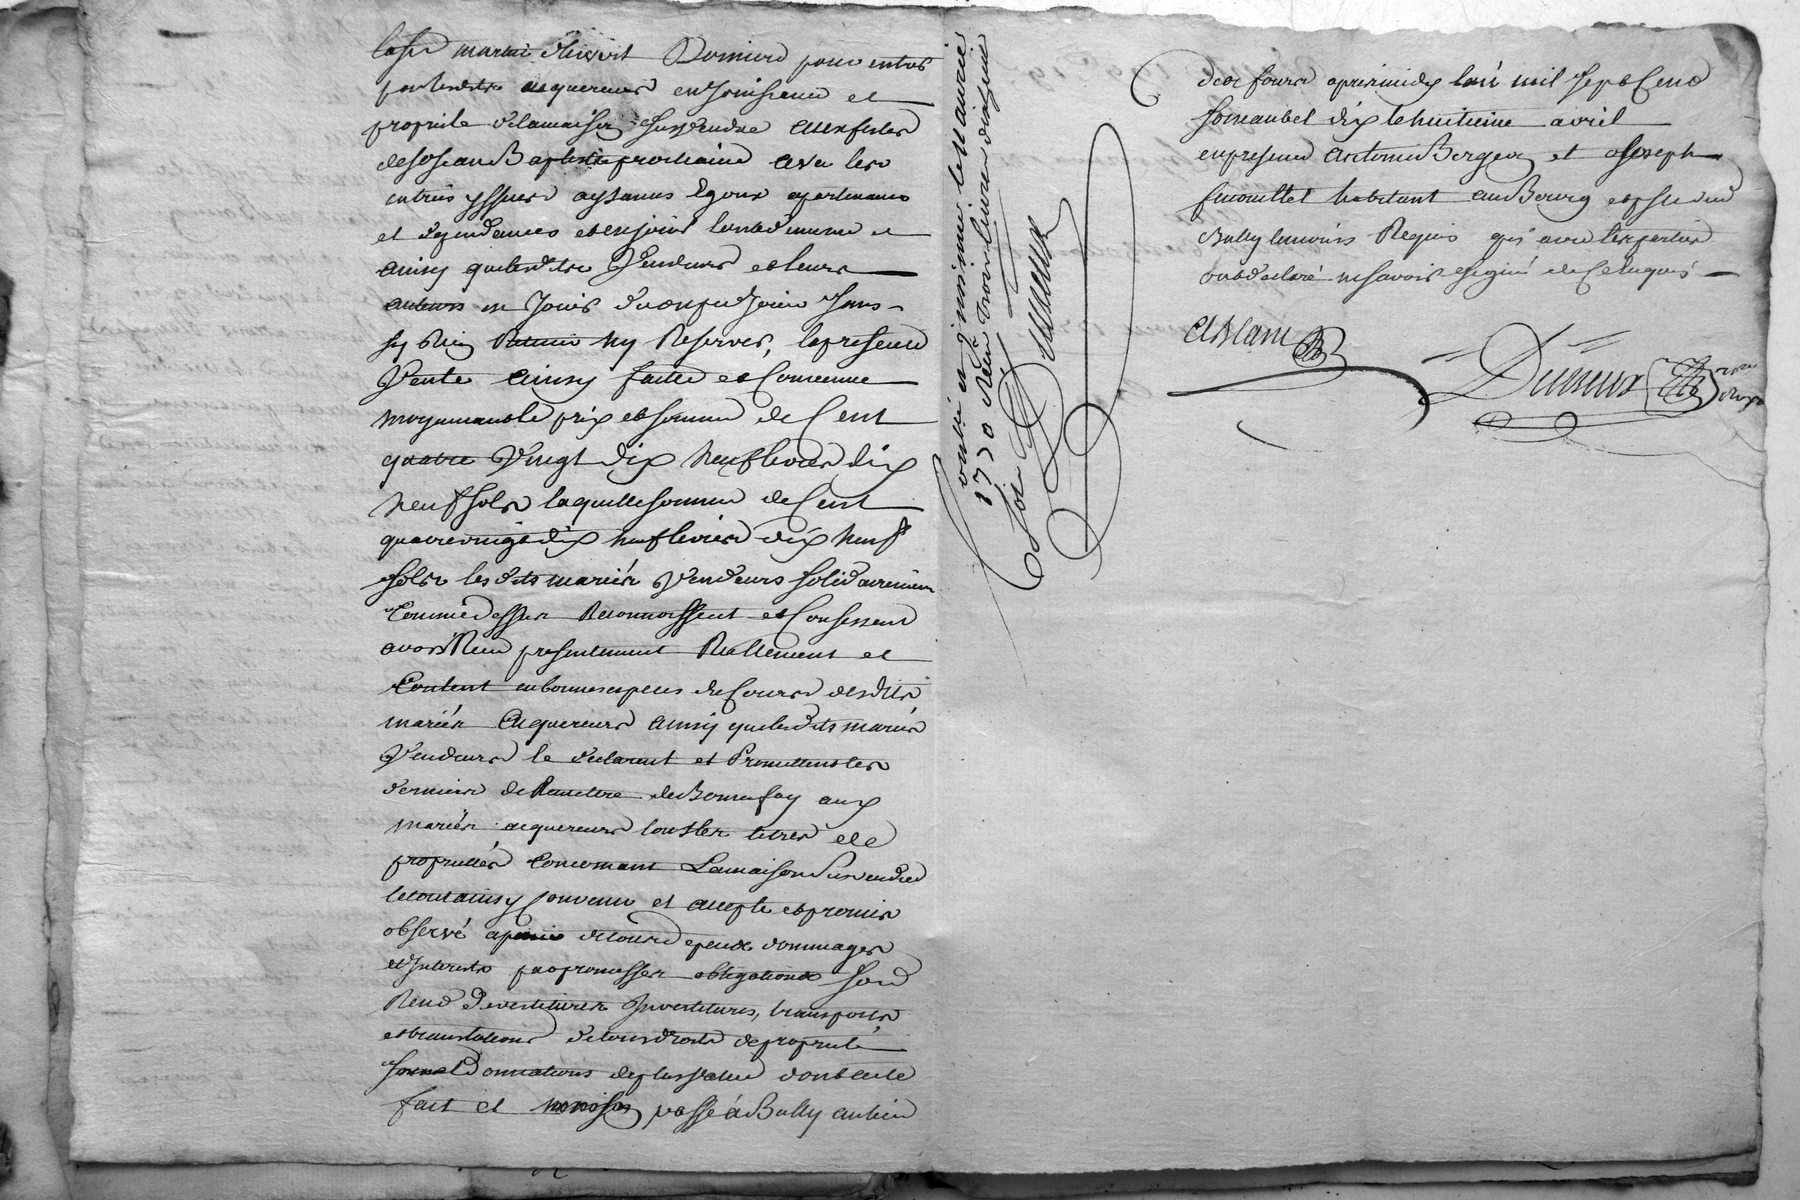 pour entrer
par lesdits acquereurs en Jouissance et
proprieté delamaison susvendue auxfestes
deSt Jean Baptiste prochaine avec les
entrées yssues aysances Egoux apartenances
et dependances et enjouir toutdememe et
ainsy quelesdits Vendeurs et leurs
auteurs en Jouis dû ou pu Jouir sans
sy Rien Retenir ny Reserver, lapresente
Vente ainsy faitte et Convenue
moyennantle prix et somme de Cent
quatre Vingt dix neuf livres dix
neuf sols laquelle somme de Cent
quatrevingt dix neuf livres dix neuf
sols les dits mariés Vendeurs solidairement
Comme dessus Reconnoissent et Confessent
avoir Reçu presentement Reellement et
Content en bonnes especes de Cours desdits
mariés acquereurs ainsy quelesdits mariés
Vendeurs le declarent et Promettent les
derniers de Remettre de Bonne foy aux
mariés acquereurs tous les titres de
proprietés Concernant La maison Susvendue
letout ainsy Convenu et accepté et promis
observé apeine detous depens dommages
et Interests par promesses obligations
Devestitures Investitures, transports
et translations detous droits deproprieté
donnations deplusvalue dont acte
fait et passé à Bully en lieu
1770 Reçu trois livres dix
Dumoux
de Cours apresmidy l'an mil sept Cent
soixante et dix le huitieme avril
en presence d'antoine Berger et Joseph
habitant au Bourg et paroisse de
Bully temoins Requis qui avec lesparties
ont declaré ne savoir signé de ce Enquis
Dumoux
nre
Royal